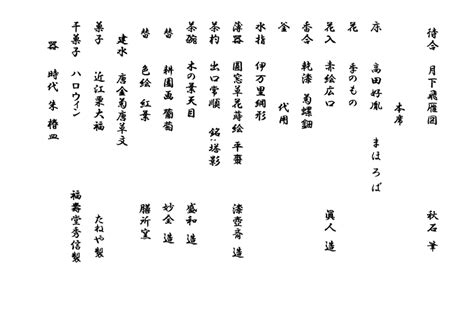 待合 月下飛雁図 秋石 筆
本席
床 高田好胤 まほろば
花 季のもの
花入 赤絵広口 眞人 造
香合 乾漆 菊螺鈿
釜 代用
水指 伊万里網形
薄器 圓窓草花蒔絵 平棗 漆壺斎 造
茶杓 出口常順 銘:塔影
茶碗 木の葉天目 盛和 造
替 耕園画 葡萄 妙全 造
替 色絵 紅葉 膳所窯
建水 唐金菊唐草文
菓子 近江栗大福 たねや製
干菓子 ハロウィン 福壽堂秀信製
器 時代 朱 椿皿